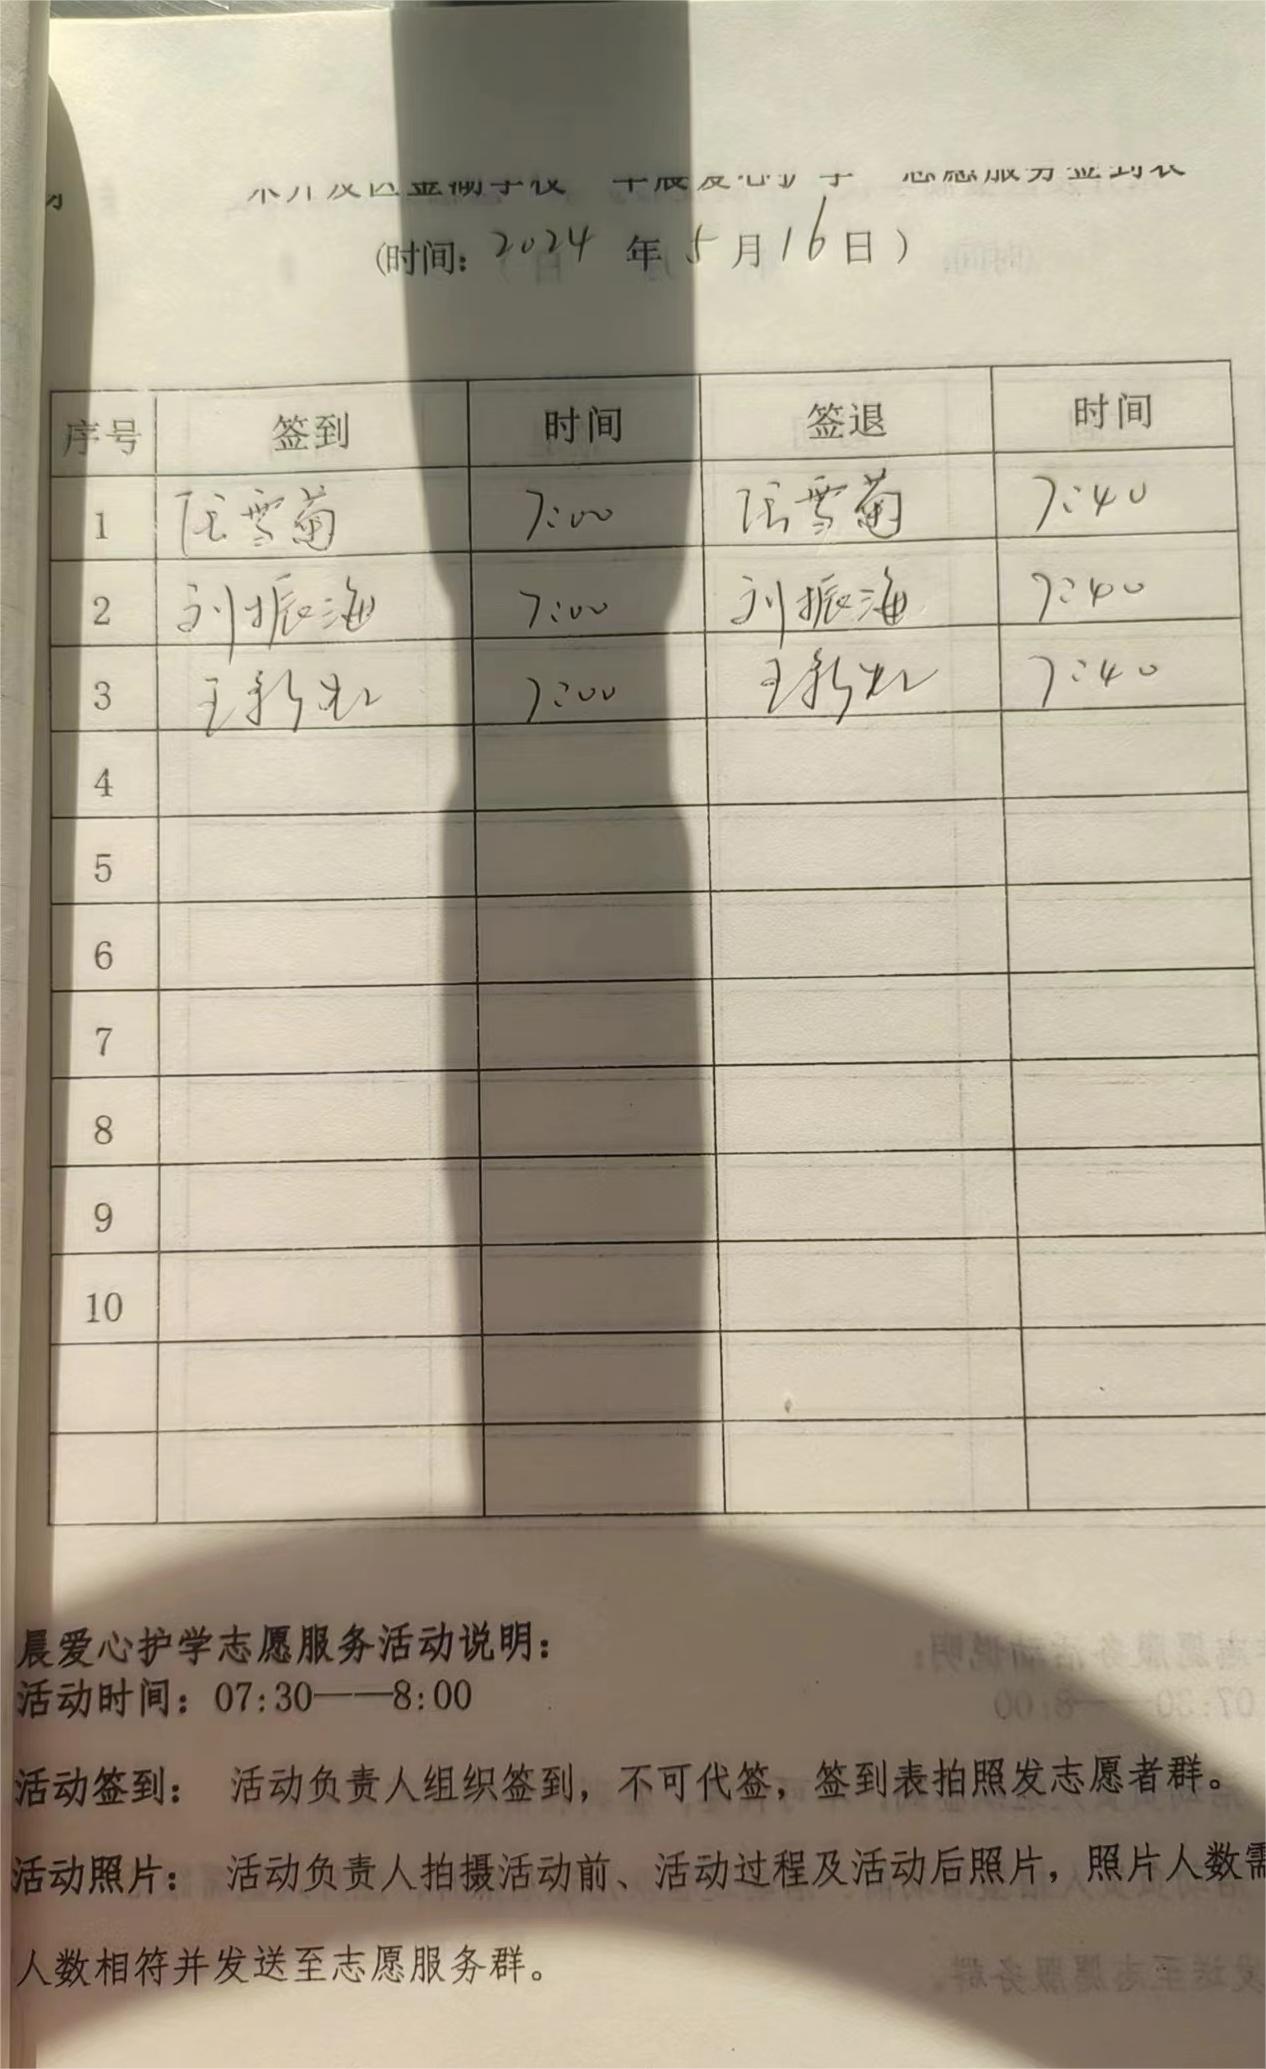 (时间：2024 年 5 月 16 日)
序号 签到 时间 签退 时间
1 张雪菊 7:00 张雪菊 7:40
2 刘振海 7:00 刘振海 7:40
3 7:00 7:40
4
5
6
7
8
9
10
晨爱心护学志愿服务活动说明：
活动时间：07:30——8:00
活动签到： 活动负责人组织签到，不可代签，签到表拍照发志愿者群。
活动照片： 活动负责人拍摄活动前、活动过程及活动后照片，照片人数需
人数相符并发送至志愿服务群。